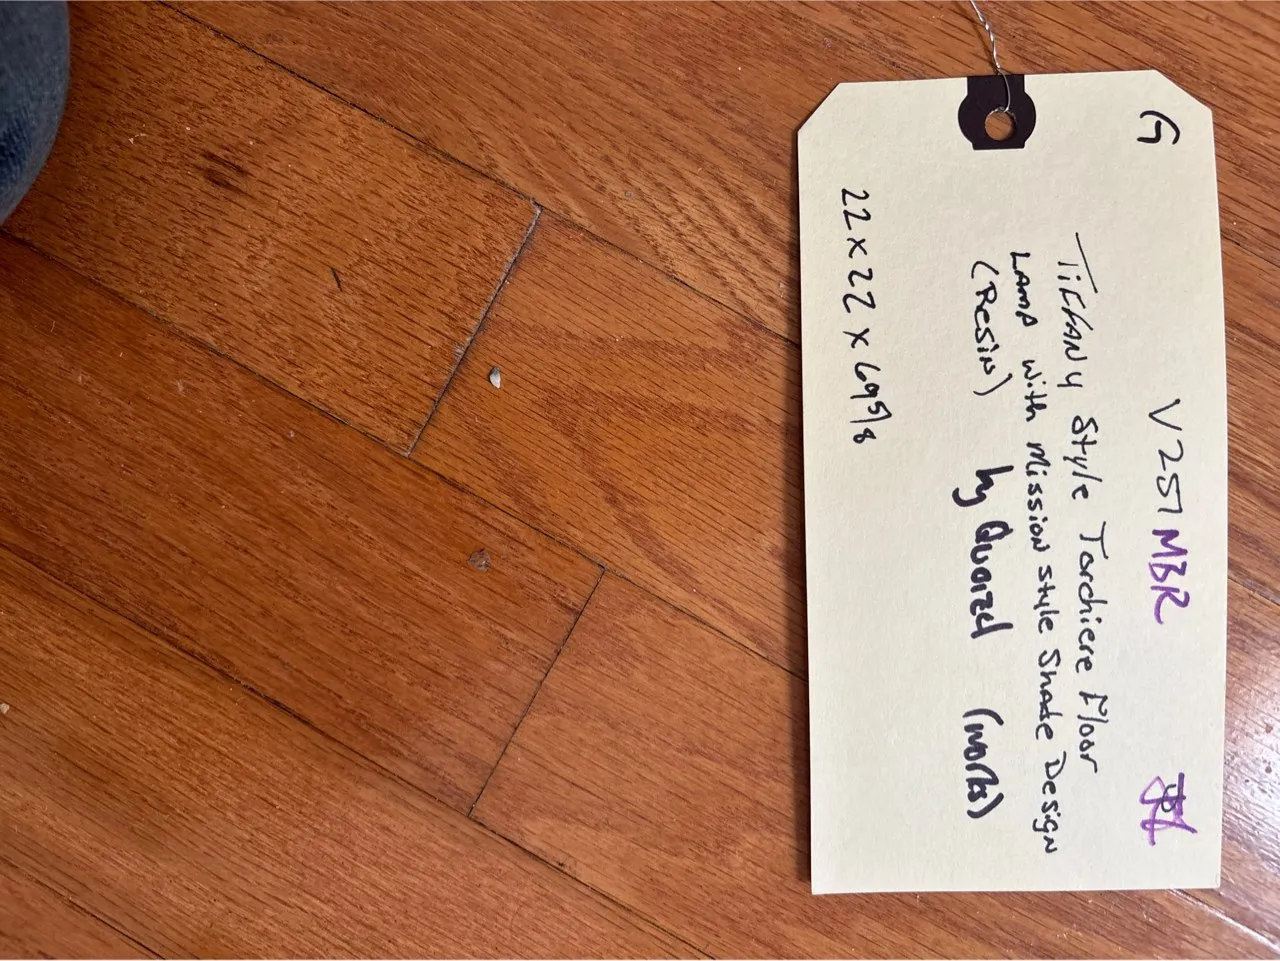 G
V257 MBR
Tiffany Style Torchiere Floor
Lamp with Mission Style Shade Design
(Resin) by Quoizel (works)
22 x 22 x 69 5/8